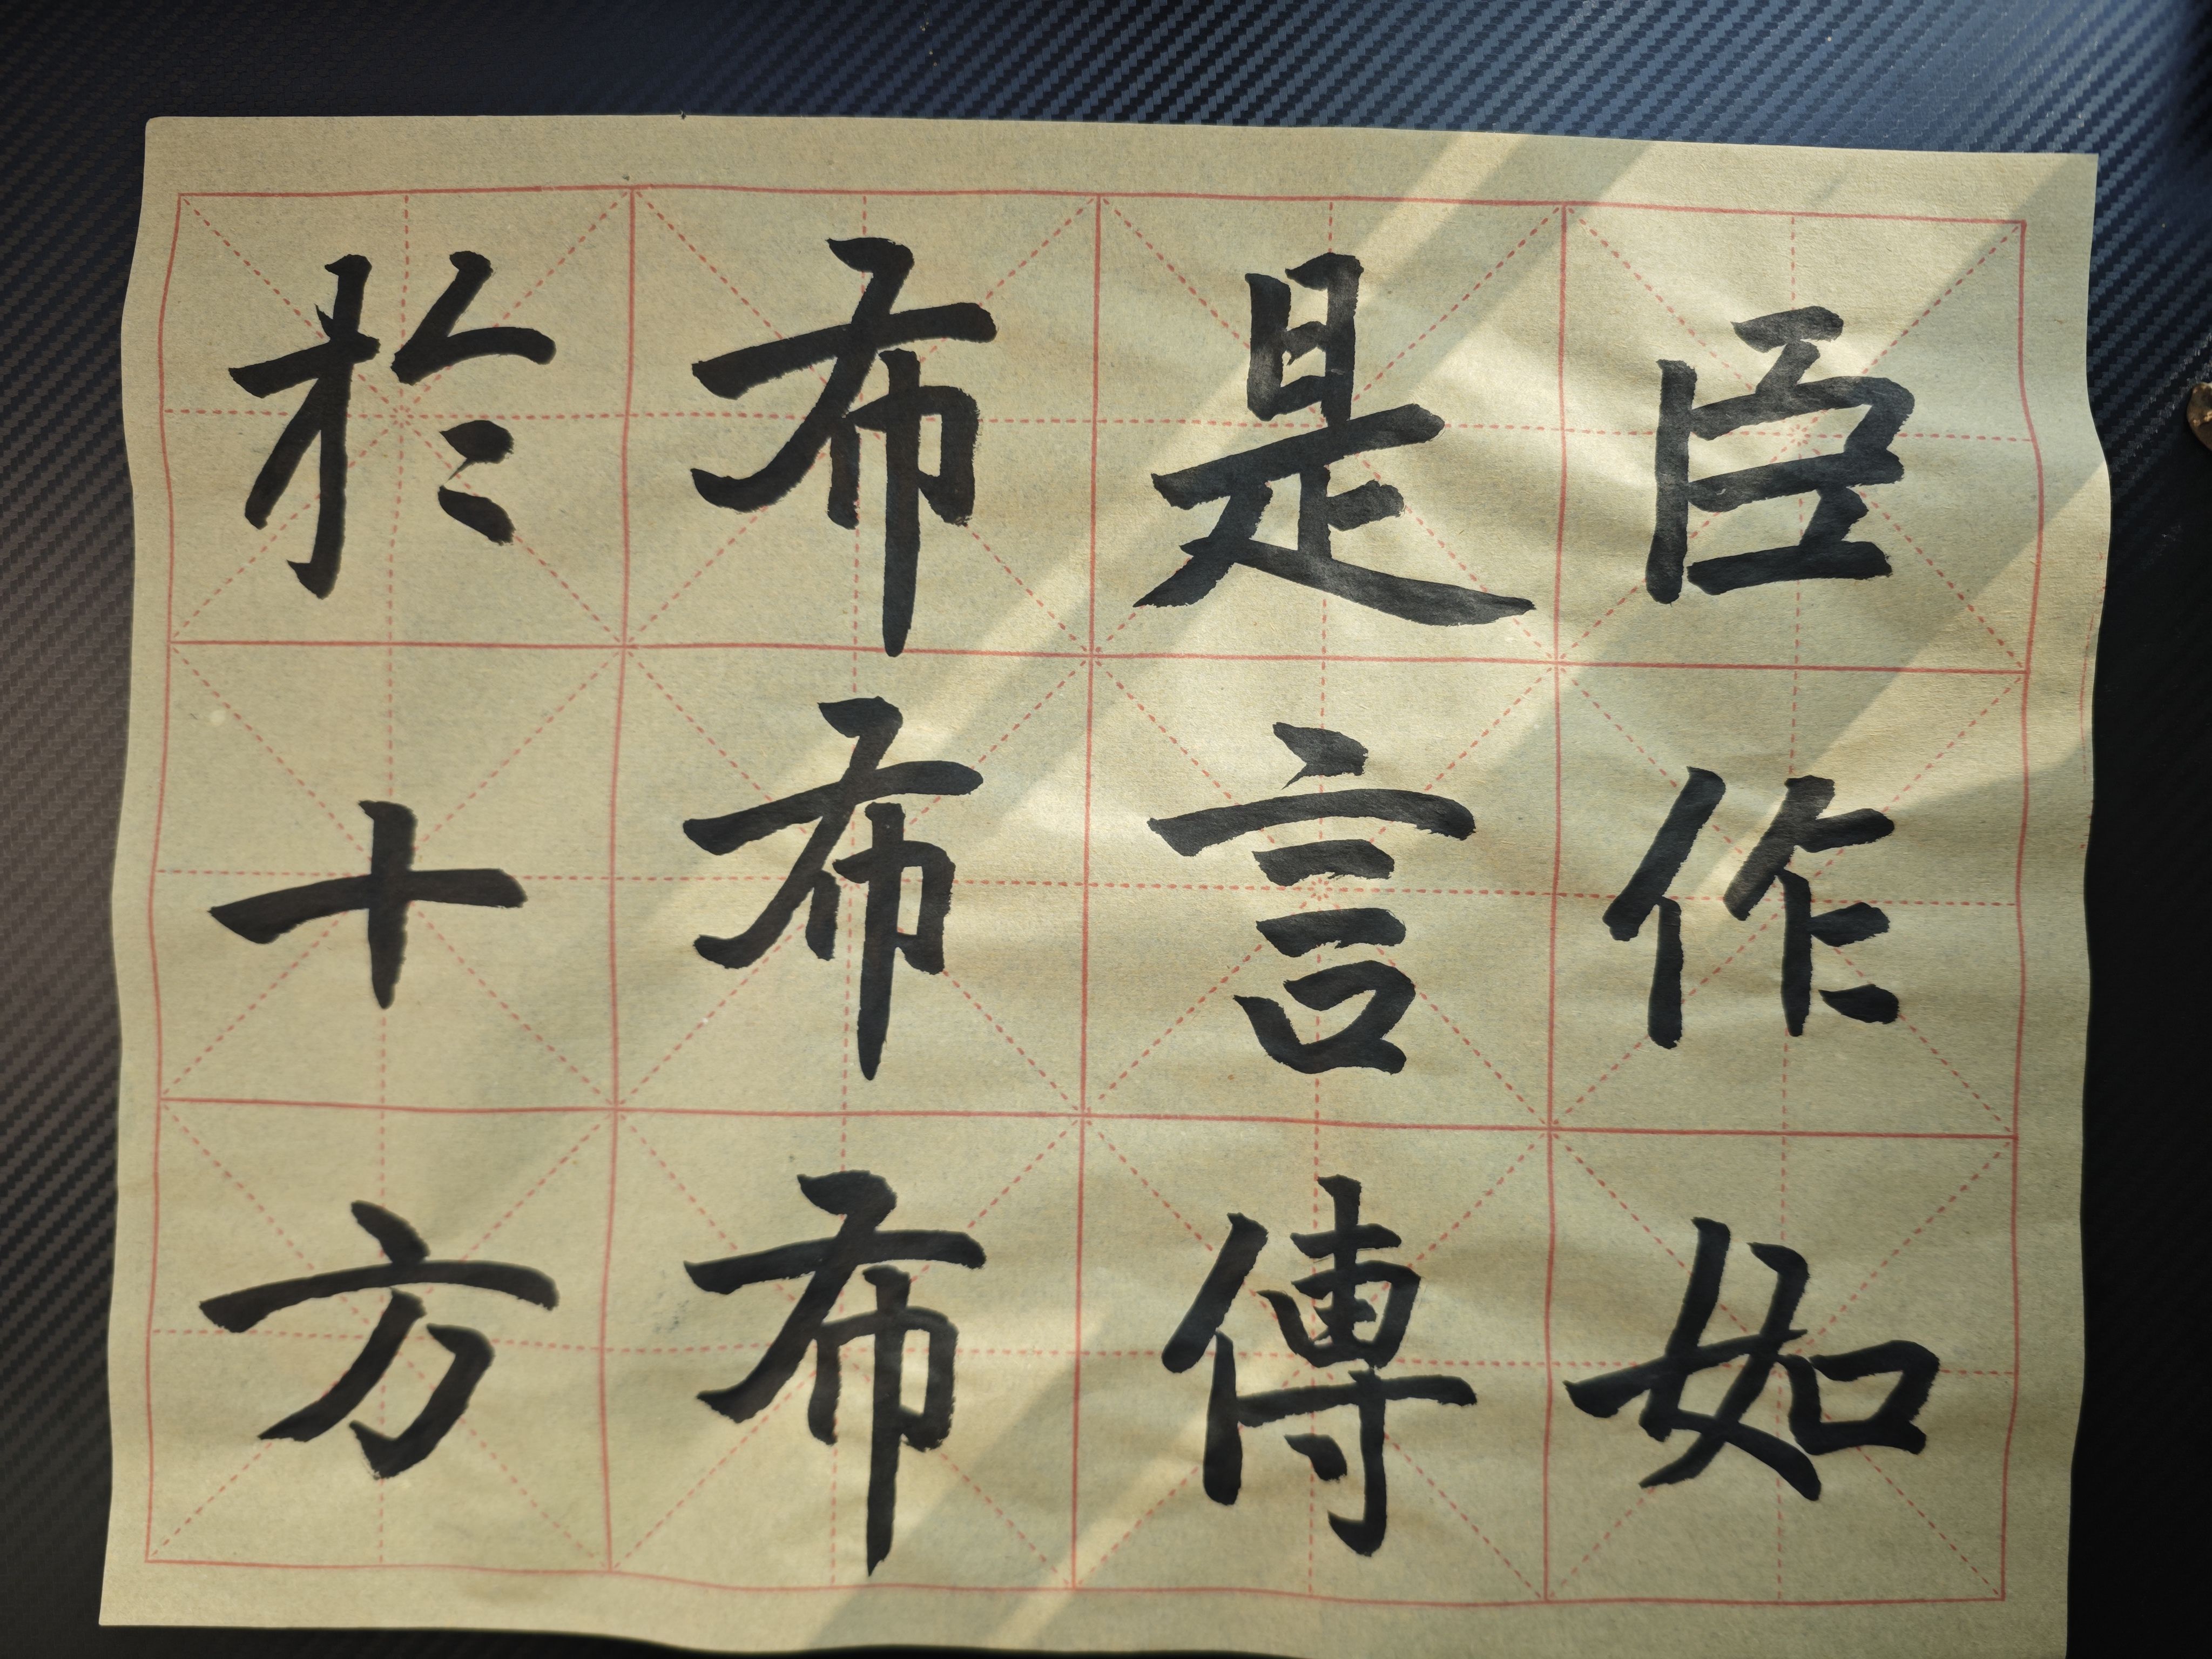 臣作如
是言傳
布布布
於十方